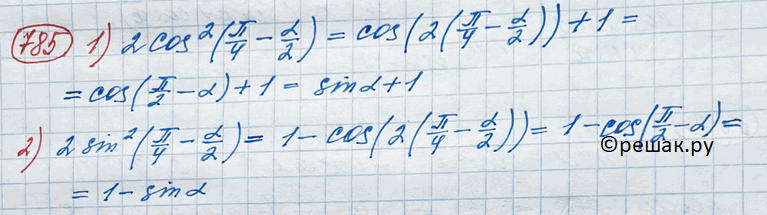 785 1) 2cos²(π/4 − α/2) = cos(2(π/4 − α/2)) + 1 =
= cos(π/2 − α) + 1 = sinα + 1
2) 2sin²(π/4 − α/2) = 1 − cos(2(π/4 − α/2)) = 1 − cos(π/2 − α) =
©решак.ру
= 1 − sinα